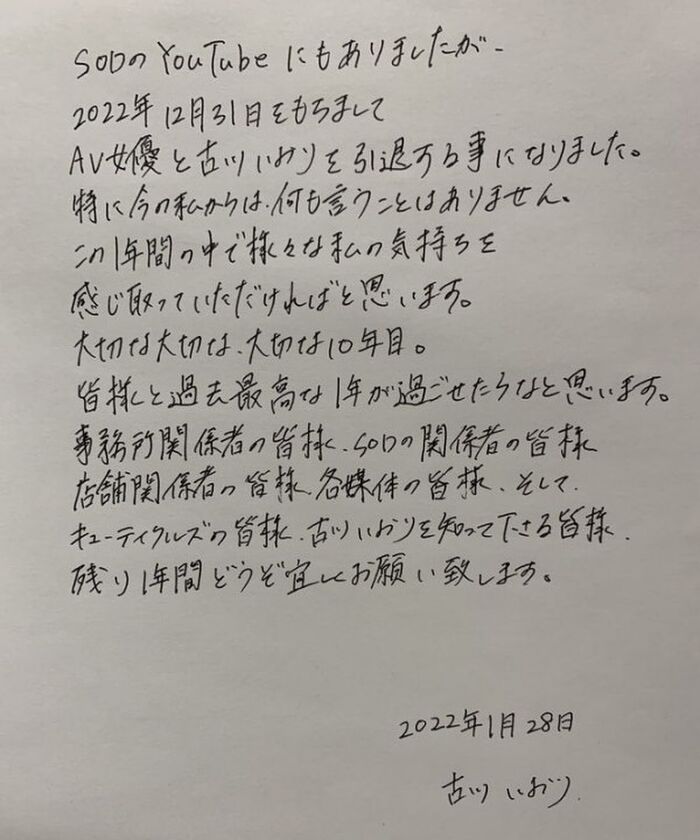 SODのYouTubeにもありましたが、
2022年12月31日をもちまして
AV女優と古川いおりを引退する事になりました。
特に今の私からは、何も言うことはありません。
この1年間の中で様々な私の気持ちを
感じ取っていただければと思います。
大切な大切な、大切な10年目。
皆様と過去最高な1年が過ごせたらなと思います。
事務所関係者の皆様、SODの関係者の皆様
店舗関係者の皆様、各媒体の皆様、そして、
キューティクルズの皆様、古川いおりを知って下さる皆様、
残り1年間どうぞ宜しくお願い致します。
2022年1月28日
古川いおり